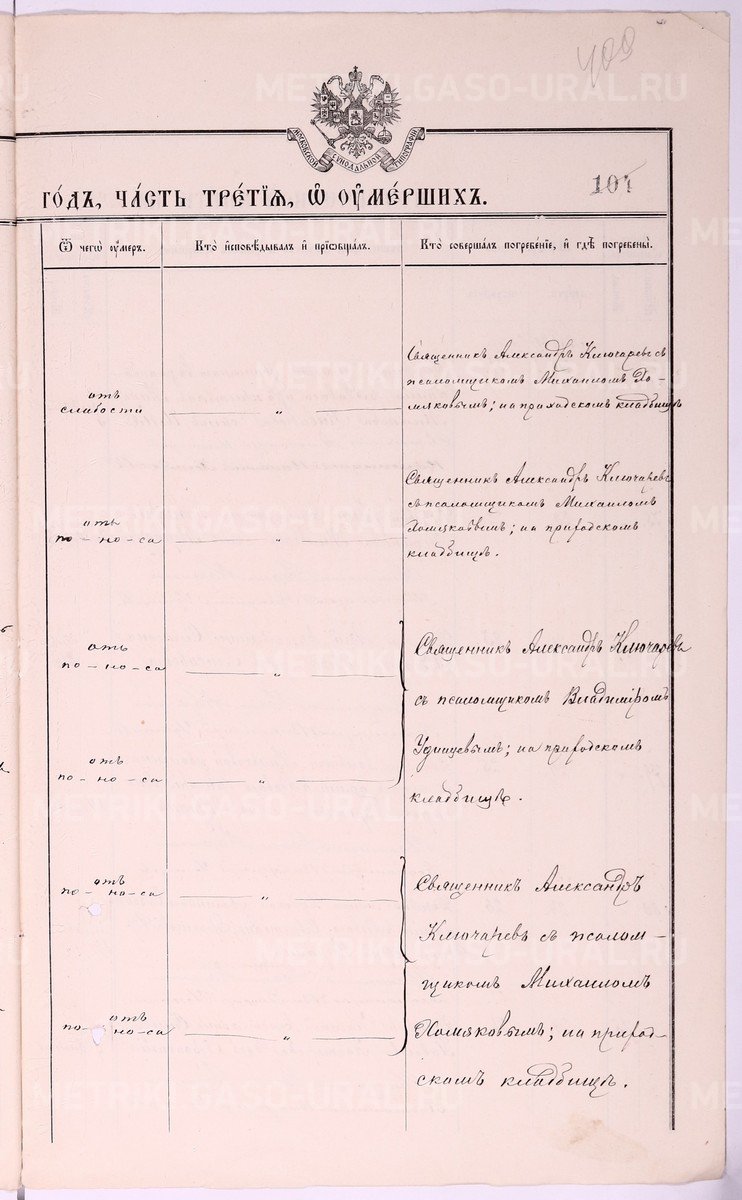 400
METRIKI.GASO-URAL.RU
МОСКОВСКОЙ СѴНОДАЛЬНОЙ ТИПОГРАФІИ
104
ГО́ДЪ, ЧА́СТЬ ТРЕ́ТІЯ, Ѡ҆ ОУ҆МЕ́РШИХЪ.
Ѿ чегѡ̀ оу҆́меръ.
Кто̀ и҆сповѣ́дывалъ и҆ прїѡбща́лъ.
Кто̀ соверша́лъ погребе́нїе, и҆ гдѣ̀ погребены̀.
отъ
слабости
"
Священникъ Александръ Ключаревъ съ
псаломщикомъ Михаиломъ Хо-
мяковымъ; на приходскомъ кладбищѣ
отъ
по-но-са
"
Священникъ Александръ Ключаревъ
съ псаломщикомъ Михаиломъ
Хомяковымъ; на приходскомъ
кладбищѣ.
отъ
по-но-са
"
отъ
по-но-са
"
Священникъ Александръ Ключаревъ
съ псаломщикомъ Владиміромъ
Удинцевымъ; на приходскомъ
кладбищѣ.
отъ
по-но-са
"
отъ
по-но-са
"
Священникъ Александръ
Ключаревъ съ псалом-
щикомъ Михаиломъ
Хомяковымъ; на приход-
скомъ кладбищѣ.